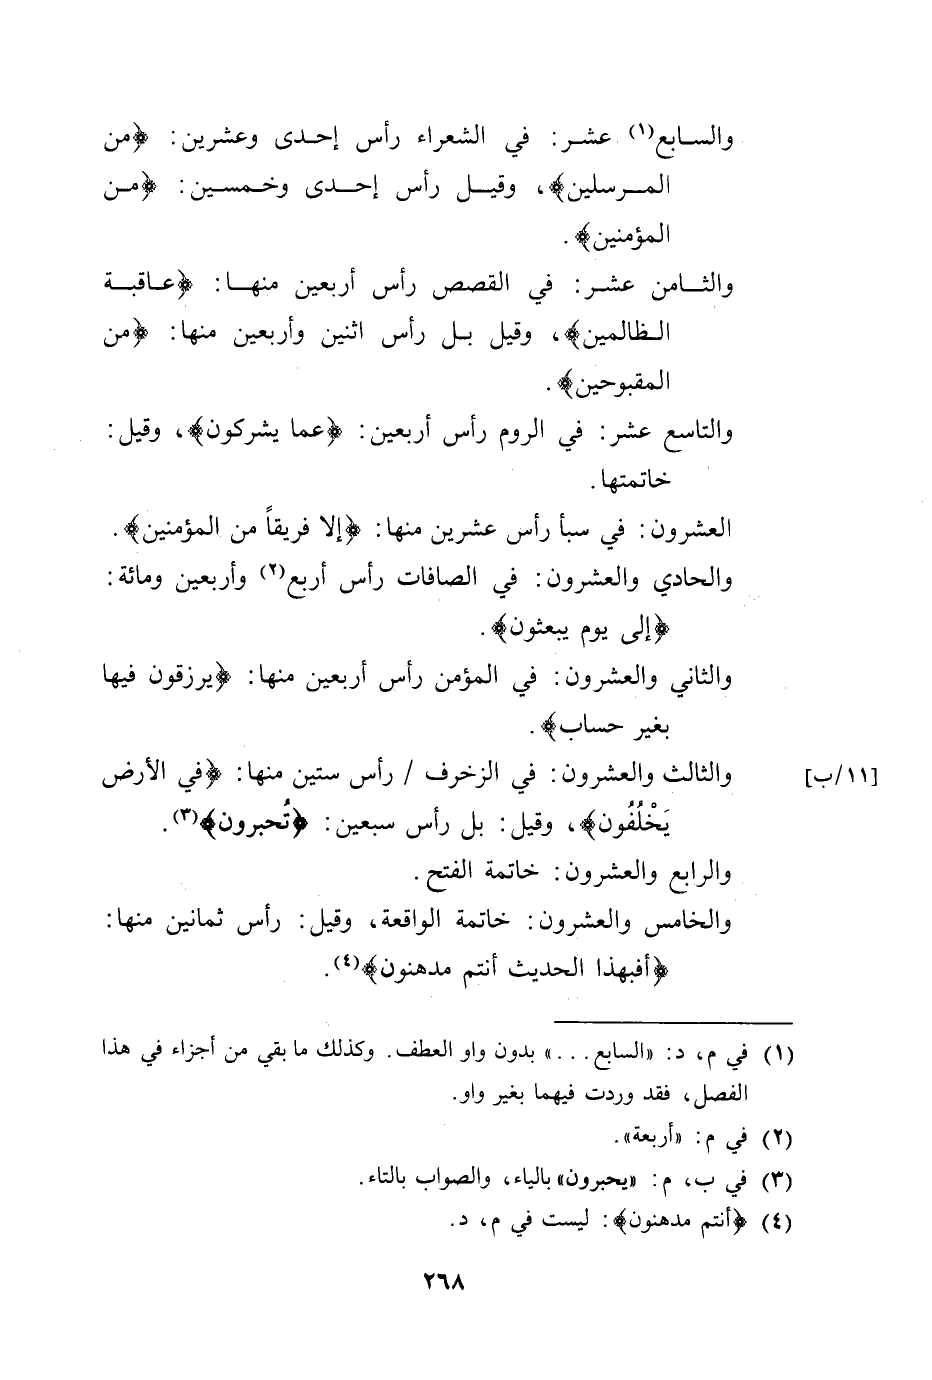 والسابع(١) عشر: في الشعراء رأس إحدى وعشرين: ﴿من
المرسلين﴾، وقيل رأس إحدى وخمسين: ﴿من
المؤمنين﴾.
والثامن عشر: في القصص رأس أربعين منها: ﴿عاقبة
الظالمين﴾، وقيل بل رأس اثنين وأربعين منها: ﴿من
المقبوحين﴾.
والتاسع عشر: في الروم رأس أربعين: ﴿عما يشركون﴾، وقيل:
خاتمتها.
العشرون: في سبأ رأس عشرين منها: ﴿إلا فريقاً من المؤمنين﴾.
والحادي والعشرون: في الصافات رأس أربع(٢) وأربعين ومائة:
﴿إلى يوم يبعثون﴾.
والثاني والعشرون: في المؤمن رأس أربعين منها: ﴿يرزقون فيها
بغير حساب﴾.
والثالث والعشرون: في الزخرف / رأس ستين منها: ﴿في الأرض [١١/ب]
يَخْلُفُون﴾، وقيل: بل رأس سبعين: ﴿تُحبرون﴾(٣).
والرابع والعشرون: خاتمة الفتح.
والخامس والعشرون: خاتمة الواقعة، وقيل: رأس ثمانين منها:
﴿أفبهذا الحديث أنتم مدهنون﴾(٤).
(١) في م، د: «السابع...» بدون واو العطف. وكذلك ما بقي من أجزاء في هذا
الفصل، فقد وردت فيهما بغير واو.
(٢) في م: «أربعة».
(٣) في ب، م: «يحبرون» بالياء، والصواب بالتاء.
(٤) ﴿أنتم مدهنون﴾: ليست في م، د.
٢٦٨